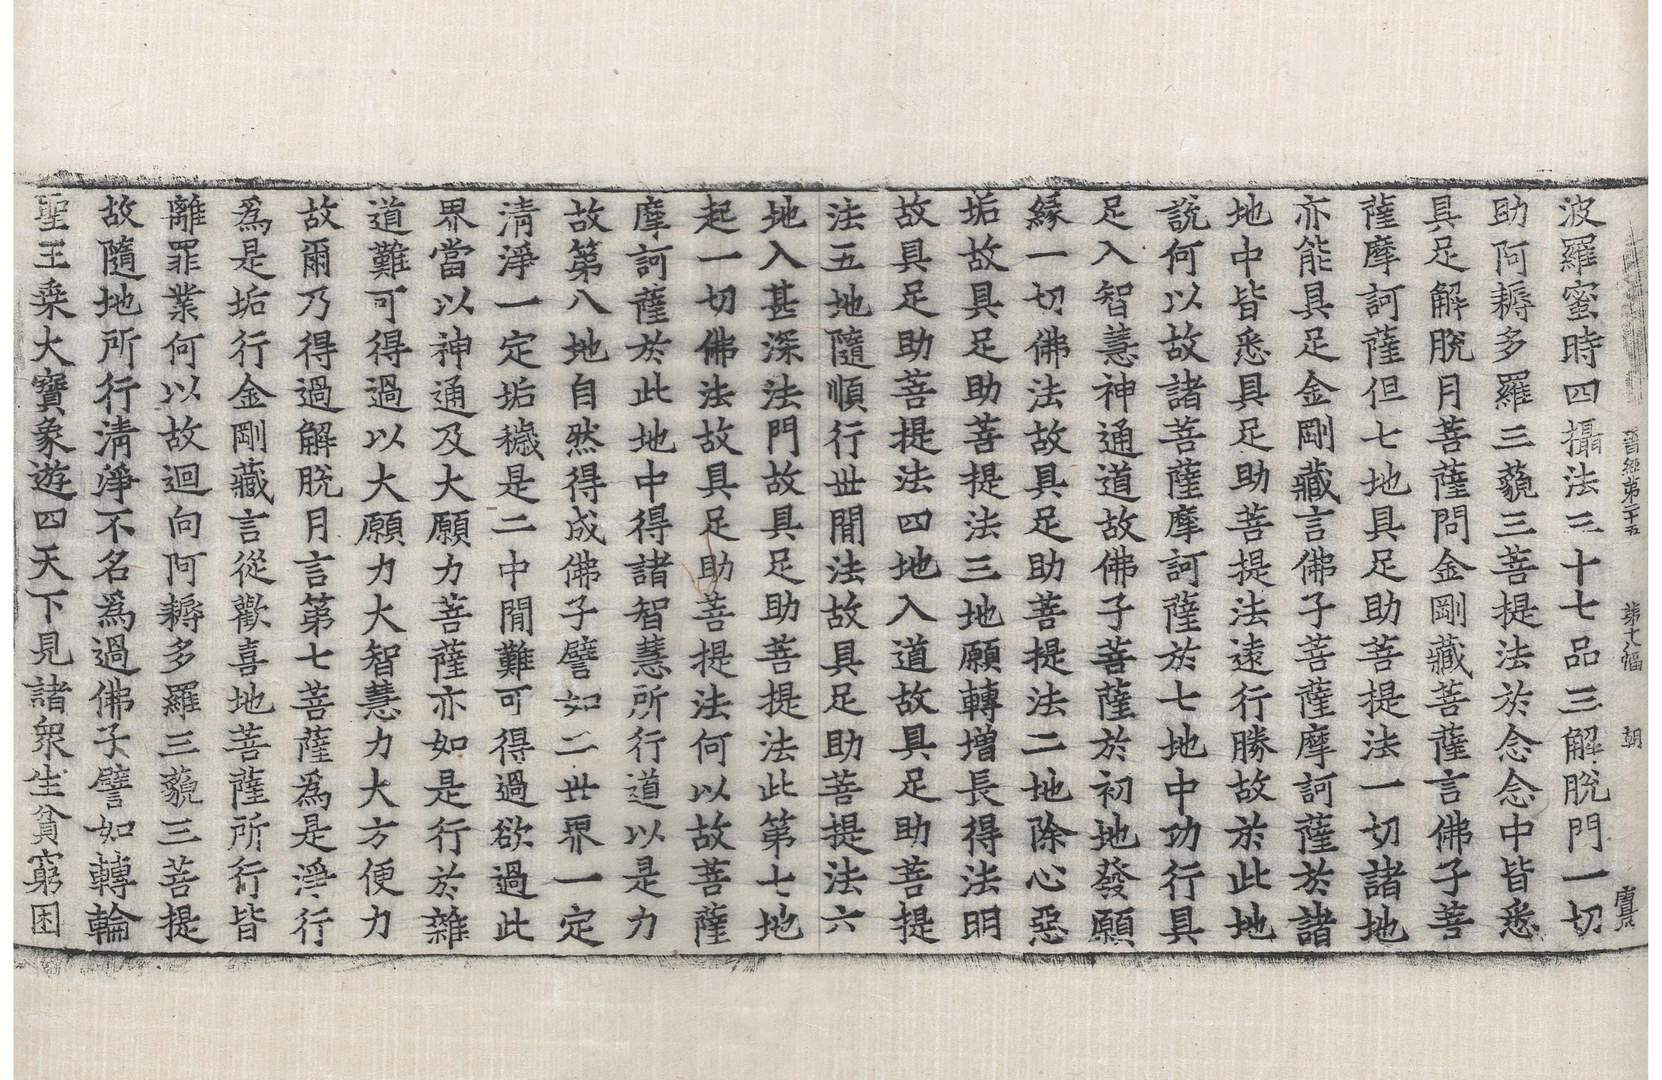 晉經第二十五 第十八幅 朝
波羅蜜時四攝法三十七品三解脫門一切
助阿耨多羅三藐三菩提法於念念中皆悉
具足解脫月菩薩問金剛藏菩薩言佛子菩
薩摩訶薩但七地具足助菩提法一切諸地
亦能具足金剛藏言佛子菩薩摩訶薩於諸
地中皆悉具足助菩提法遠行勝故於此地
說何以故諸菩薩摩訶薩於七地中功行具
足入智慧神通道故佛子菩薩於初地發願
緣一切佛法故具足助菩提法二地除心惡
垢故具足助菩提法三地願轉增長得法明
故具足助菩提法四地入道故具足助菩提
法五地隨順行世間法故具足助菩提法六
地入甚深法門故具足助菩提法此第七地
起一切佛法故具足助菩提法何以故菩薩
摩訶薩於此地中得諸智慧所行道以是力
故第八地自然得成佛子譬如二世界一定
清淨一定垢穢是二中間難可得過欲過此
界當以神通及大願力菩薩亦如是行於雜
道難可得過以大願力大智慧力大方便力
故爾乃得過解脫月言第七菩薩為是淨行
為是垢行金剛藏言從歡喜地菩薩所行皆
離罪業何以故迴向阿耨多羅三藐三菩提
故隨地所行清淨不名為過佛子譬如轉輪
聖王乘大寶象遊四天下見諸眾生貧窮困